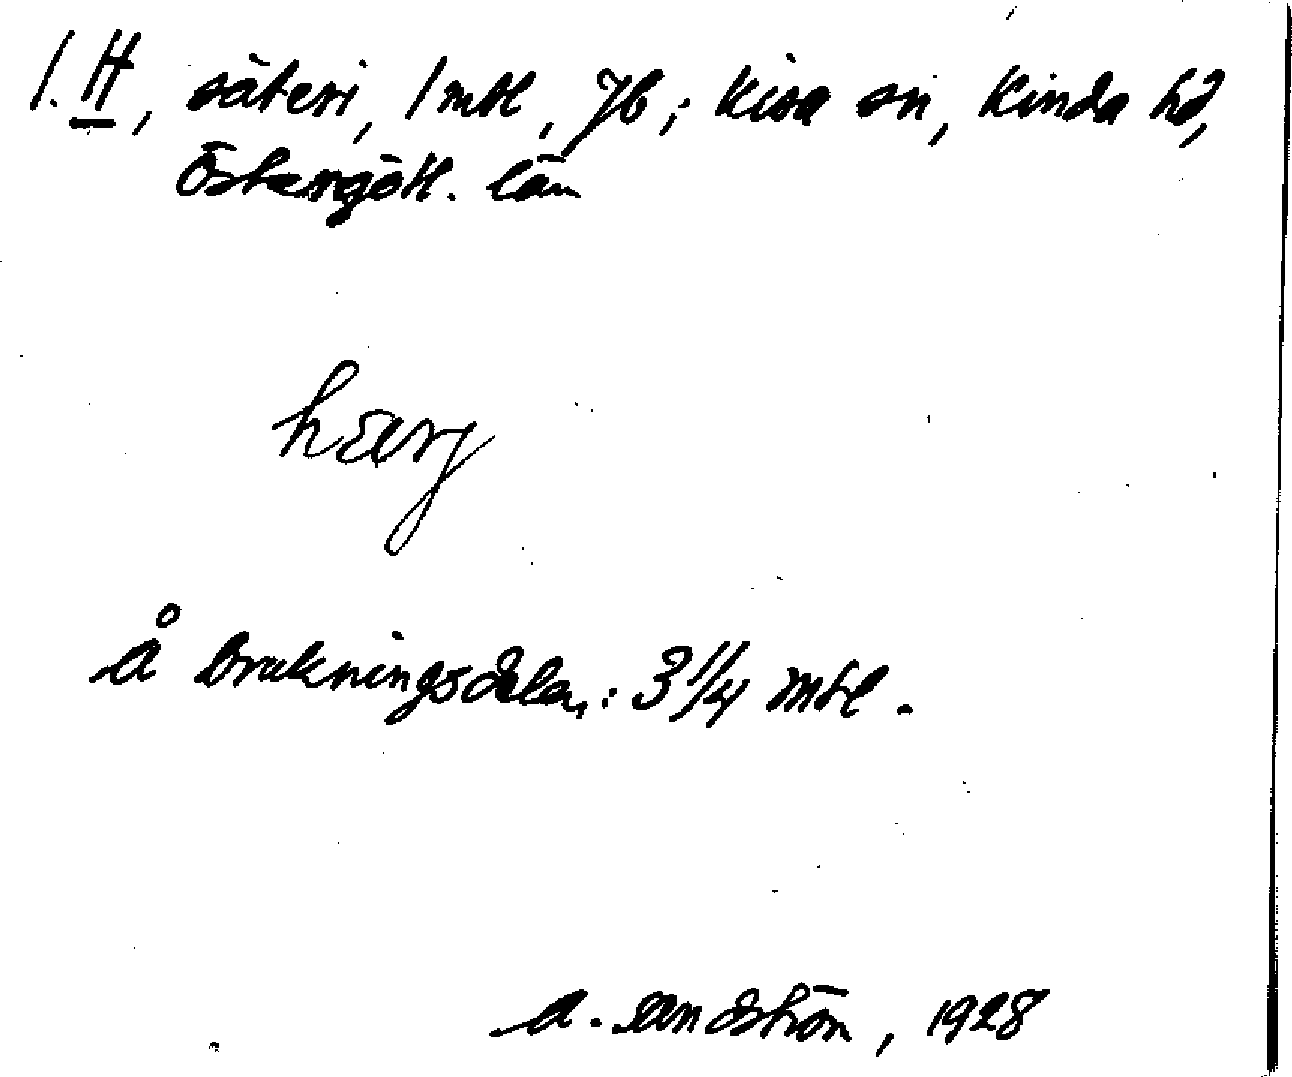 1. H, säteri, 1 mtl, Jb; Kisa sn, Kinda hd,
Östergötl. län
harj
Å brukningsdelen: 3 1/4 mtl.
A. Sandström, 1928